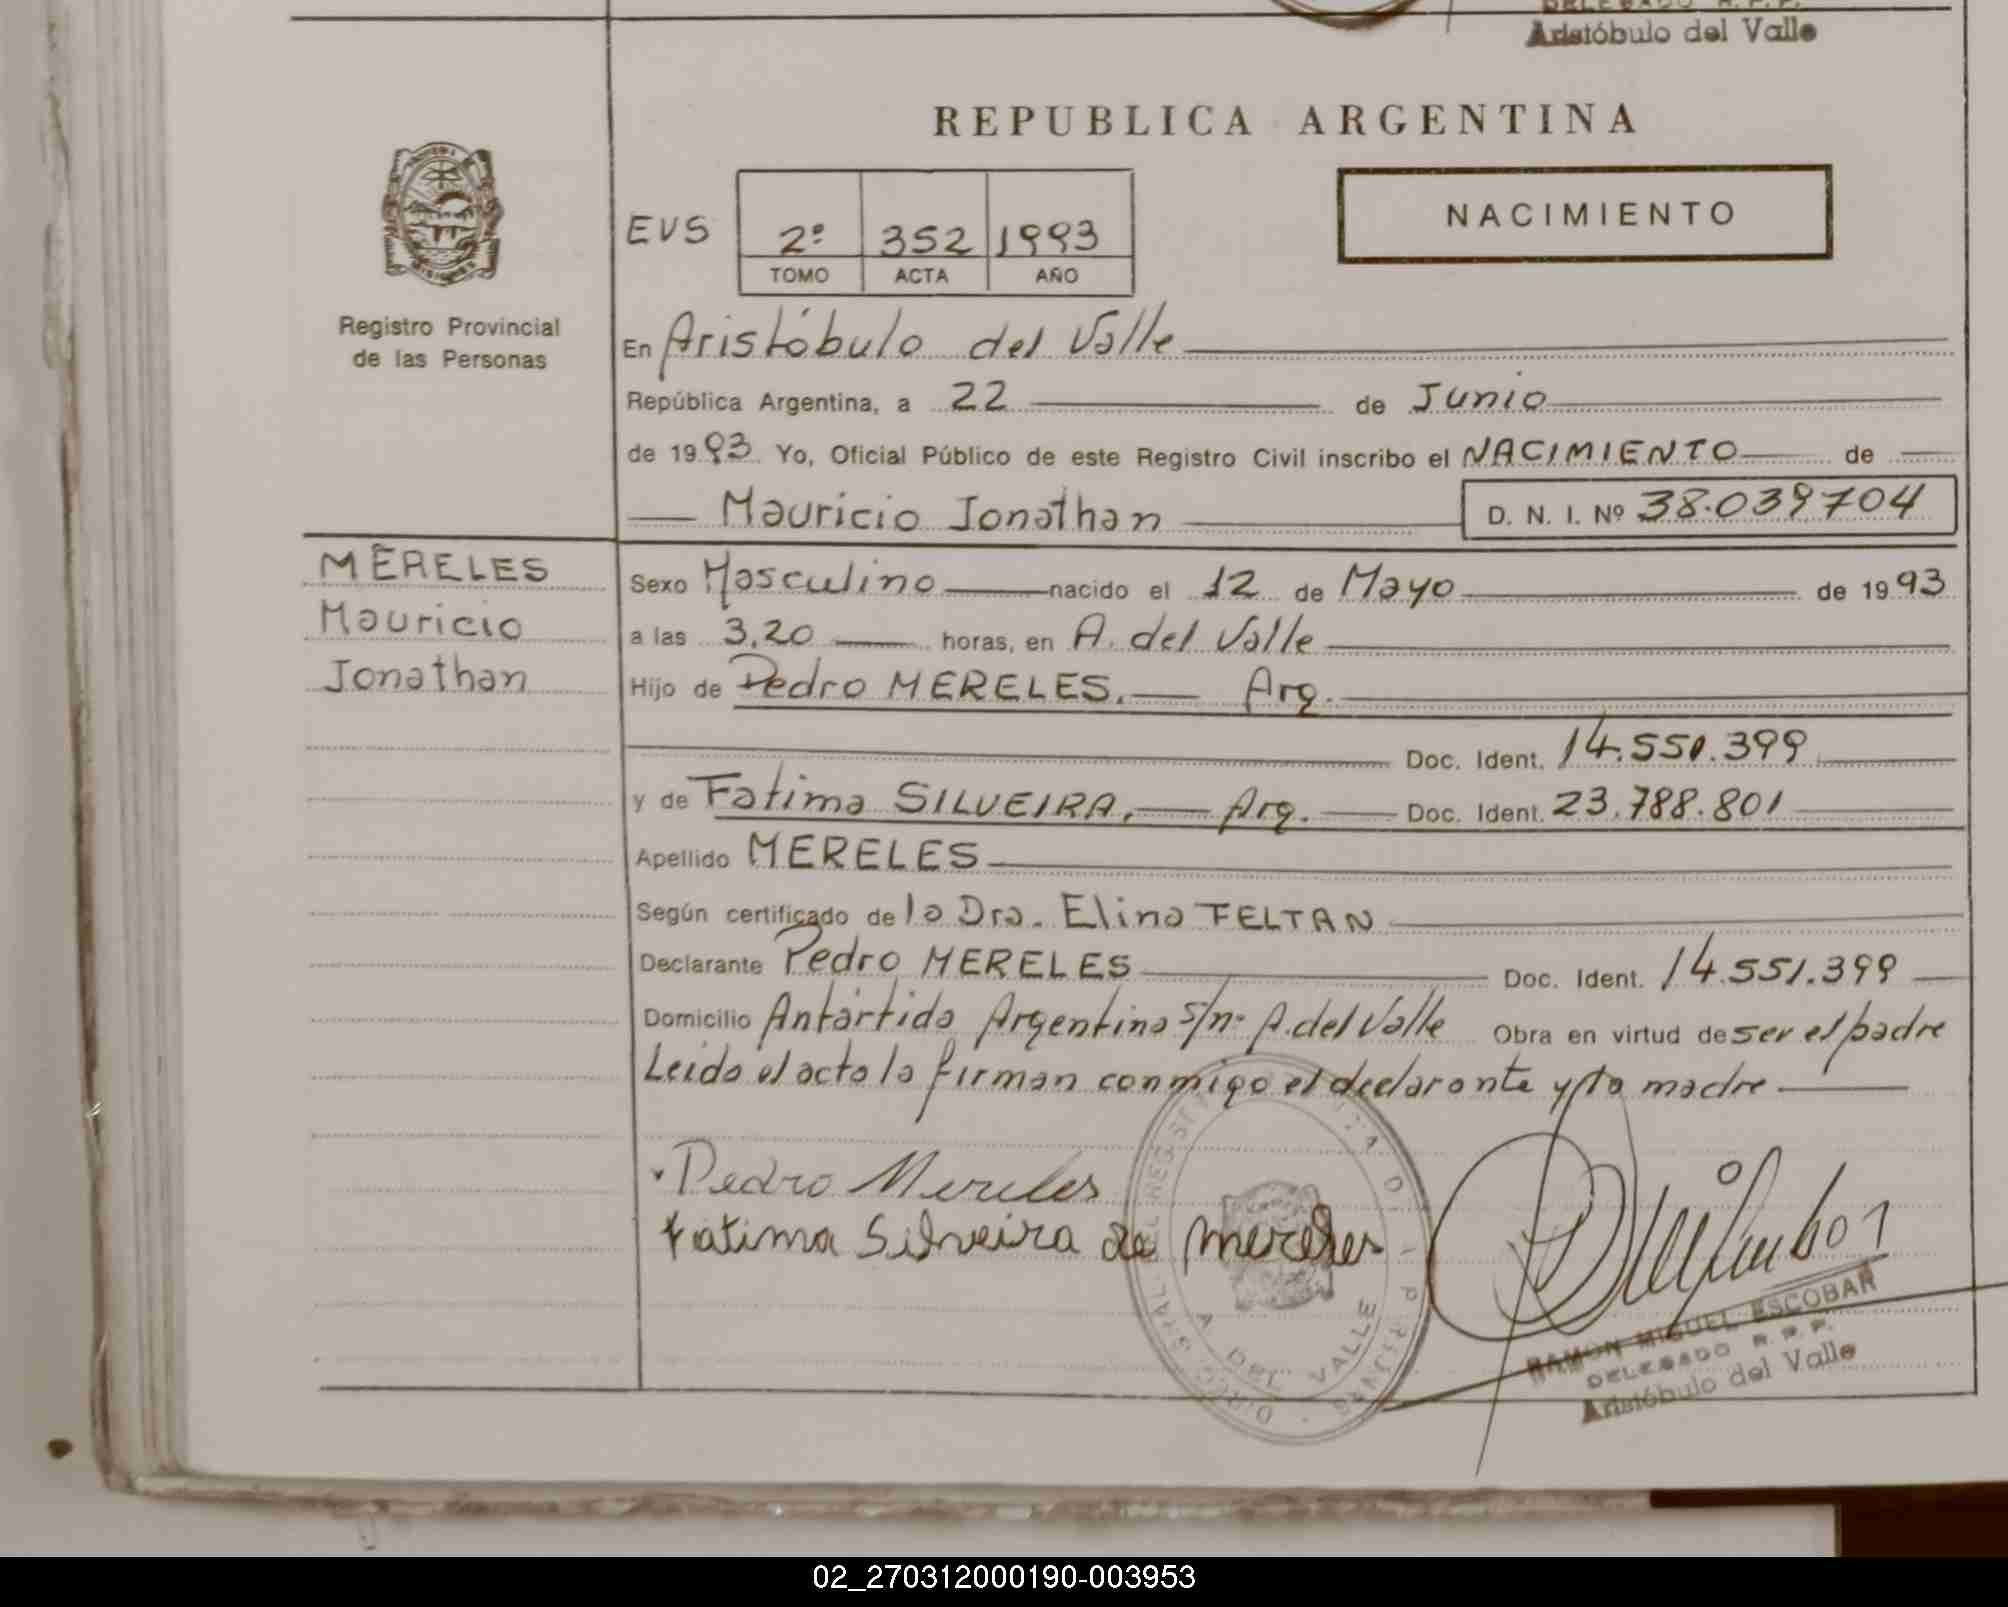 DELEGADO R. P. P.
Aristóbulo del Valle
REPUBLICA ARGENTINA
NACIMIENTO
EVS 2º 352 1993
TOMO ACTA AÑO
Registro Provincial
de las Personas
En Aristóbulo del Valle
República Argentina, a 22 de Junio
de 1993 Yo, Oficial Público de este Registro Civil inscribo el NACIMIENTO de
Mauricio Jonathan D. N. I. Nº 38.039704
MERELES
Mauricio
Jonathan
Sexo Masculino nacido el 12 de Mayo de 1993
a las 3,20 horas, en A. del Valle
Hijo de Pedro MERELES. Arg.
Doc. Ident. 14.551.399
y de Fatima SILVEIRA. Arg. Doc. Ident. 23.788.801
Apellido MERELES
Según certificado de la Dra. Elina FELTAN
Declarante Pedro MERELES Doc. Ident. 14.551.399
Domicilio Antártida Argentina s/nº A. del Valle Obra en virtud de ser el padre
Leída el acta la firman conmigo el declarante y la madre
Pedro Mereles
Fatima Silveira de Mereles
VALLE
RAMON MIGUEL ESCOBAR
DELEGADO R. P. P.
Aristóbulo del Valle
02_270312000190-003953